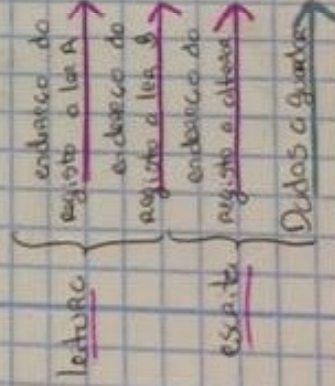 leitura
endereço do
registo a ler A
endereço do
registo a ler B
escrita
endereço do
registo a alterar
Dados a guardar